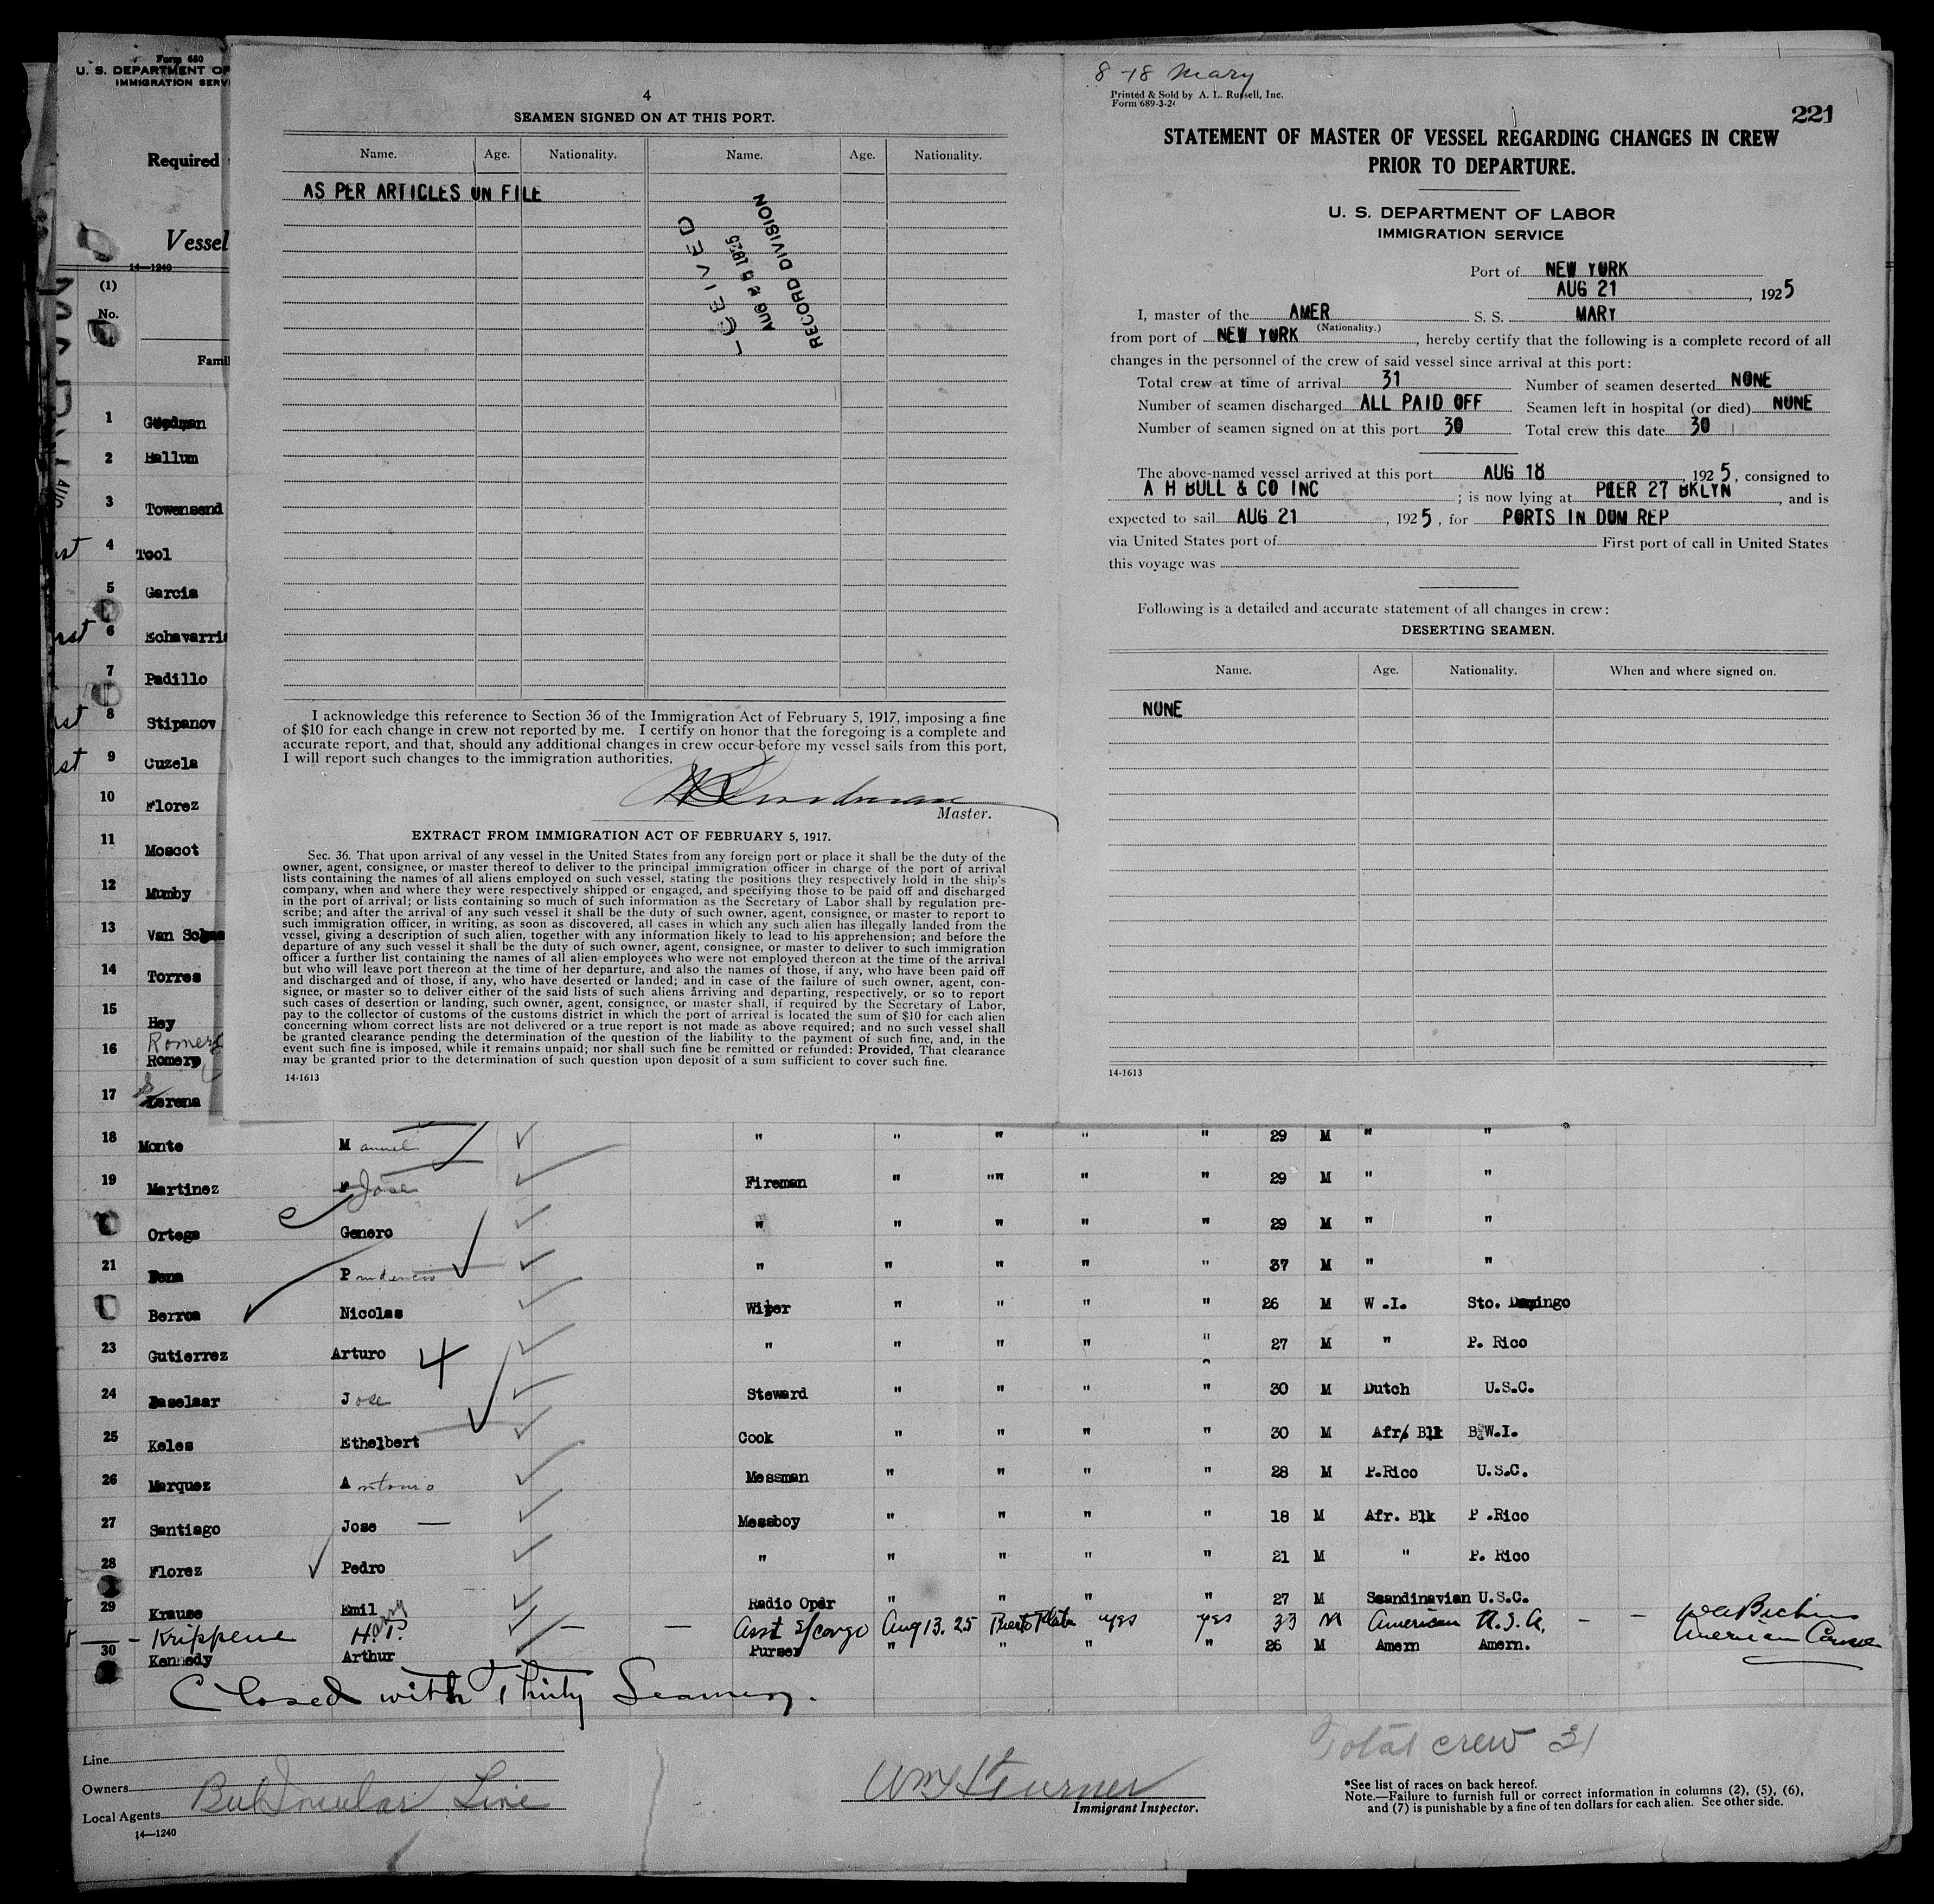 Form 680
U. S. DEPARTMENT OF
IMMIGRATION SERV
Required
Vessel
14—1240
(1)
No.
Famil
1 Goodman
2 Hallum
3 Towensend
4 Tool
5 Garcia
6 Echavarria
7 Padillo
8 Stipanov
9 Cuzela
10 Florez
11 Moscot
12 Mumby
13 Van
14 Torres
15 Hey
16 Romero
17 Lorena
4
SEAMEN SIGNED ON AT THIS PORT.
Name. Age. Nationality. Name. Age. Nationality.
AS PER ARTICLES ON FILE
AUG 25 1925
RECORD DIVISION
I acknowledge this reference to Section 36 of the Immigration Act of February 5, 1917, imposing a fine
of $10 for each change in crew not reported by me. I certify on honor that the foregoing is a complete and
accurate report, and that, should any additional changes in crew occur before my vessel sails from this port,
I will report such changes to the immigration authorities.
Master.
EXTRACT FROM IMMIGRATION ACT OF FEBRUARY 5, 1917.
Sec. 36. That upon arrival of any vessel in the United States from any foreign port or place it shall be the duty of the
owner, agent, consignee, or master thereof to deliver to the principal immigration officer in charge of the port of arrival
lists containing the names of all aliens employed on such vessel, stating the positions they respectively hold in the ship's
company, when and where they were respectively shipped or engaged, and specifying those to be paid off and discharged
in the port of arrival; or lists containing so much of such information as the Secretary of Labor shall by regulation pre-
scribe; and after the arrival of any such vessel it shall be the duty of such owner, agent, consignee, or master to report to
such immigration officer, in writing, as soon as discovered, all cases in which any such alien has illegally landed from the
vessel, giving a description of such alien, together with any information likely to lead to his apprehension; and before the
departure of any such vessel it shall be the duty of such owner, agent, consignee, or master to deliver to such immigration
officer a further list containing the names of all alien employees who were not employed thereon at the time of the arrival
but who will leave port thereon at the time of her departure, and also the names of those, if any, who have been paid off
and discharged and of those, if any, who have deserted or landed; and in case of the failure of such owner, agent, con-
signee, or master so to deliver either of the said lists of such aliens arriving and departing, respectively, or so to report
such cases of desertion or landing, such owner, agent, consignee, or master shall, if required by the Secretary of Labor,
pay to the collector of customs of the customs district in which the port of arrival is located the sum of $10 for each alien
concerning whom correct lists are not delivered or a true report is not made as above required; and no such vessel shall
be granted clearance pending the determination of the question of the liability to the payment of such fine, and, in the
event such fine is imposed, while it remains unpaid; nor shall such fine be remitted or refunded: Provided, That clearance
may be granted prior to the determination of such question upon deposit of a sum sufficient to cover such fine.
14-1613
8-18 Mary
Printed & Sold by A. L. Russell, Inc.
Form 689-3-2
221
STATEMENT OF MASTER OF VESSEL REGARDING CHANGES IN CREW
PRIOR TO DEPARTURE.
U. S. DEPARTMENT OF LABOR
IMMIGRATION SERVICE
Port of NEW YORK
AUG 21, 1925
I, master of the AMER S. S. MARY
(Nationality.)
from port of NEW YORK, hereby certify that the following is a complete record of all
changes in the personnel of the crew of said vessel since arrival at this port:
Total crew at time of arrival 31 Number of seamen deserted NONE
Number of seamen discharged ALL PAID OFF Seamen left in hospital (or died) NONE
Number of seamen signed on at this port 30 Total crew this date 30
The above-named vessel arrived at this port AUG 18 1925, consigned to
A H BULL & CO INC ; is now lying at PIER 27 BKLYN, and is
expected to sail AUG 21, 1925, for PORTS IN DOM REP
via United States port of First port of call in United States
this voyage was
Following is a detailed and accurate statement of all changes in crew:
DESERTING SEAMEN.
Name. Age. Nationality. When and where signed on.
NONE
14-1613
18 Monte Manuel " " " " " 29 M " "
19 Martinez Jose Fireman " "" " " 29 M " "
Ortega Genero " " " " " 29 M " "
21 Pena Prudencio " " " " " 37 M " "
Berroa Nicolas Wiper " " " " 26 M W.I. Sto. Domingo
23 Gutierrez Arturo 4 " " " " " 27 M " P. Rico
24 Baselaar Jose Steward " " " " 30 M Dutch U.S.C.
25 Keles Ethelbert Cook " " " " 30 M Afr. Blk B.W.I.
26 Marquez Antonio Messman " " " " 28 M P.Rico U.S.C.
27 Santiago Jose — Messboy " " " " 18 M Afr. Blk P.Rico
28 Florez Pedro " " " " " 21 M " P. Rico
29 Krause Emil Radio Oper " " " " 27 M Scandinavian U.S.C.
Krippene H.T. — — Asst S/cargo Aug 13.25 Puerto Plata yes yes 33 M American U.S.A. — —
30 Kennedy Arthur Purser " " " " 26 M Amern Amern. American Consul
Closed with Thirty Seamen.
Total crew 31
Line
Owners
Bull Insular Line
Local Agents
14—1240
Wm H Turner
Immigrant Inspector.
*See list of races on back hereof.
Note.—Failure to furnish full or correct information in columns (2), (5), (6),
and (7) is punishable by a fine of ten dollars for each alien. See other side.